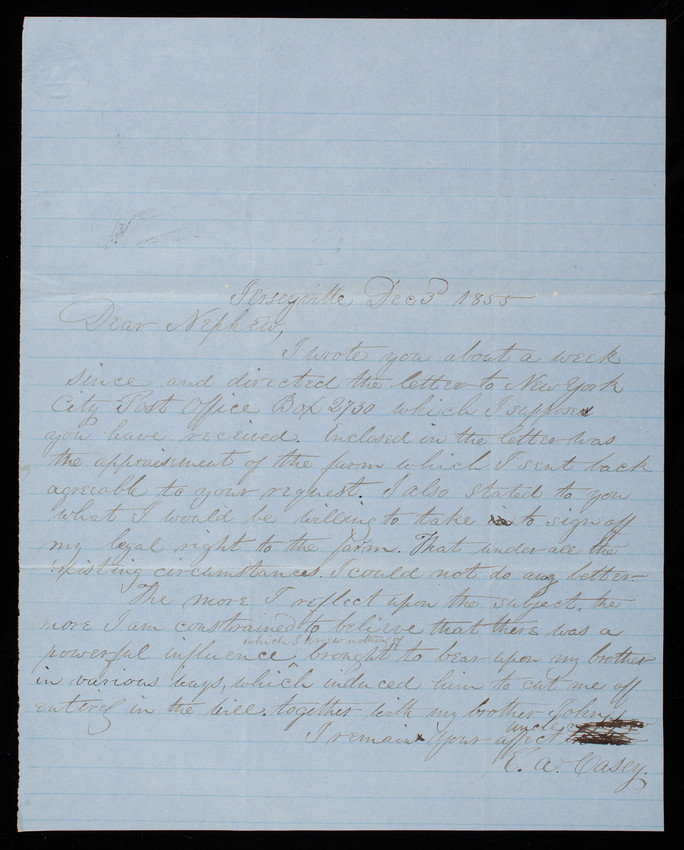 Jerseyville Dec 3d 1855
Dear Nephew,
I wrote you about a week
since and directed the letter to New York
City Post Office Box 2730 which I suppose
you have received. Enclosed in the letter was
the appraisement of the farm which I sent back
agreeable to your request. I also stated to you
what I would be willing to take to sign off
my legal right to the farm. That under all the
existing circumstances. I could not do any better
The more I reflect upon the subject. the
more I am constrained to believe that there was a
which I knew nothing of
powerful influence ^ brought to bear upon my brother
in various ways, which induced him to cut me off
entirely in the will. together with my brother John
uncle
I remain Your affect
E. A. Casey.